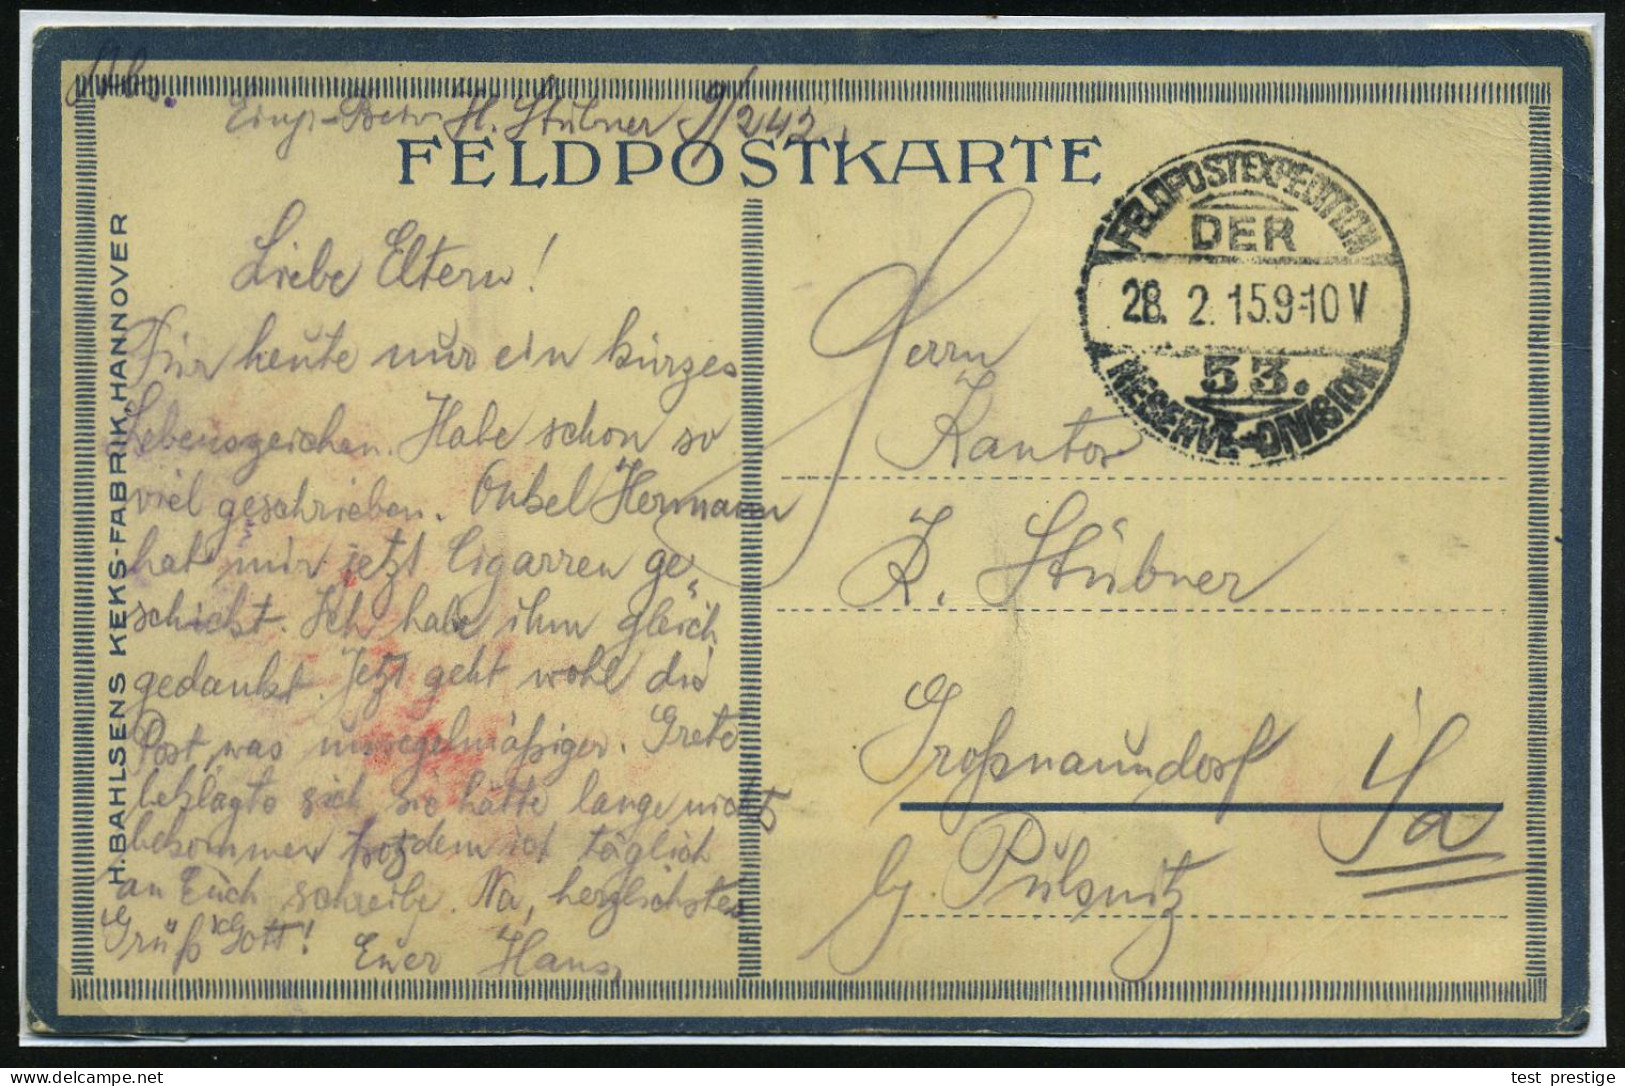 Abs.
H. Stübner 9/242.
FELDPOSTKARTE
H. BAHLSENS KEKS-FABRIK, HANNOVER
Liebe Eltern!
Für heute nur ein kurzes
Lebenszeichen. Habe schon so
viel geschrieben. Onkel Hermann
hat mir jetzt Cigarren ge-
schickt. Ich habe ihm gleich
gedankt. Jetzt geht wohl die
Post was unregelmäßiger. Grete
beklagte sich sie hätte lange nichts
bekommen trotzdem ich täglich
an Euch schreibe. Na, herzlichsten
Grüß Gott!
Euer Hans
FELDPOSTEXPEDITION
DER
28. 2. 15. 9-10 V
53.
RESERVE-DIVISION
Herrn
Kantor
K. Stübner
Großnaundorf
i/Sa
b. Pulsnitz
test prestige